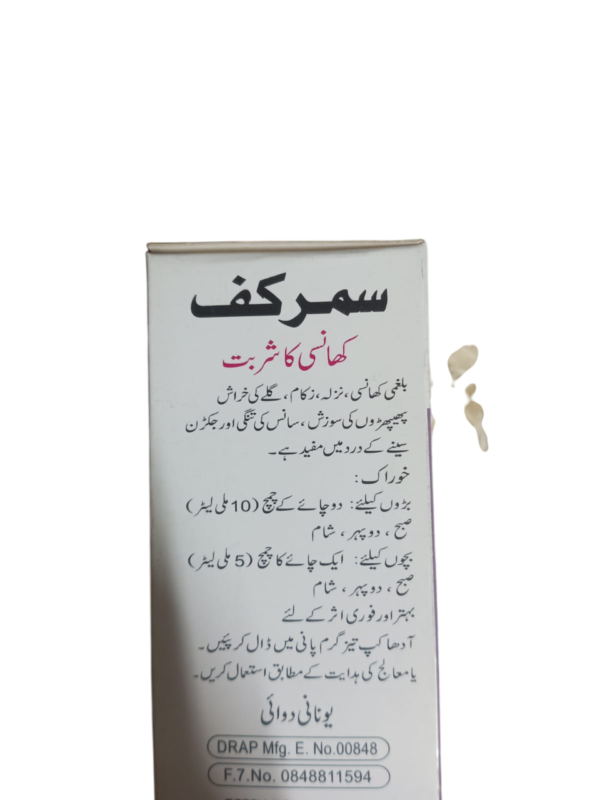 سمرکف
کھانسی کا شربت
بلغمی کھانسی، نزلہ، زکام، گلے کی خراش
پھیپھڑوں کی سوزش، سانس کی تنگی اور جکڑن
سینے کے درد میں مفید ہے۔
خوراک:
بڑوں کیلئے: دو چائے کے چمچ (10 ملی لیٹر)
صبح، دوپہر، شام
بچوں کیلئے: ایک چائے کا چمچ (5 ملی لیٹر)
صبح، دوپہر، شام
بہتر اور فوری اثر کے لئے
آدھا کپ تیز گرم پانی میں ڈال کر پئیں۔
یا معالج کی ہدایت کے مطابق استعمال کریں۔
یونانی دوائی
DRAP Mfg. E. No.00848
F.7.No. 0848811594